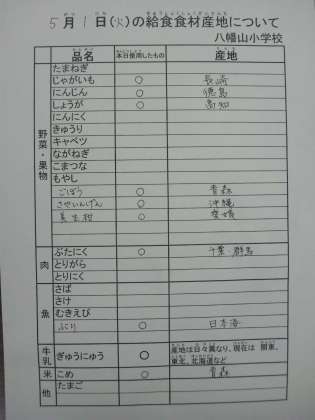 5月1日(火)の給食食材産地について
八幡山小学校
品名 本日使用したもの 産地
野菜・果物
たまねぎ
じゃがいも ○ 長崎
にんじん ○ 徳島
しょうが ○ 高知
にんにく
きゅうり
キャベツ
ながねぎ
こまつな
もやし
ごぼう ○ 青森
さやいんげん ○ 沖縄
美生柑 ○ 愛媛
肉
ぶたにく ○ 千葉・群馬
とりがら
とりにく
魚
さば
さけ
むきえび
ぶり ○ 日本海
牛乳 ぎゅうにゅう ○ 産地は日々異なり、現在は 関東、
東北、北海道など
米 こめ ○ 青森
他 たまご